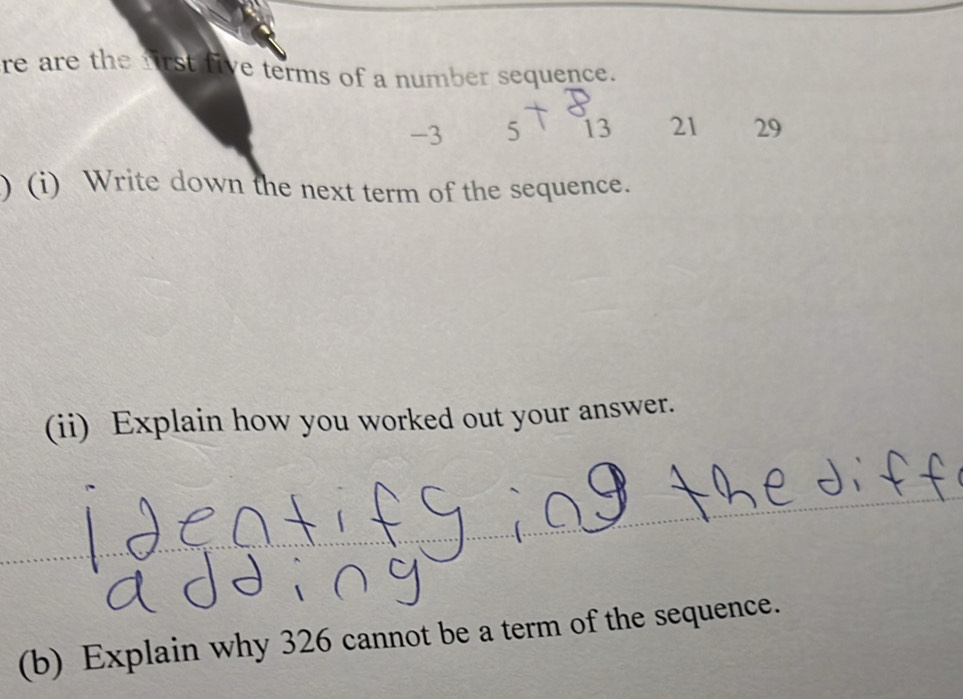 re are the first five terms of a number sequence.
-3 5 + 8 13 21 29
) (i) Write down the next term of the sequence.
(ii) Explain how you worked out your answer.
identifying the diff
adding
(b) Explain why 326 cannot be a term of the sequence.